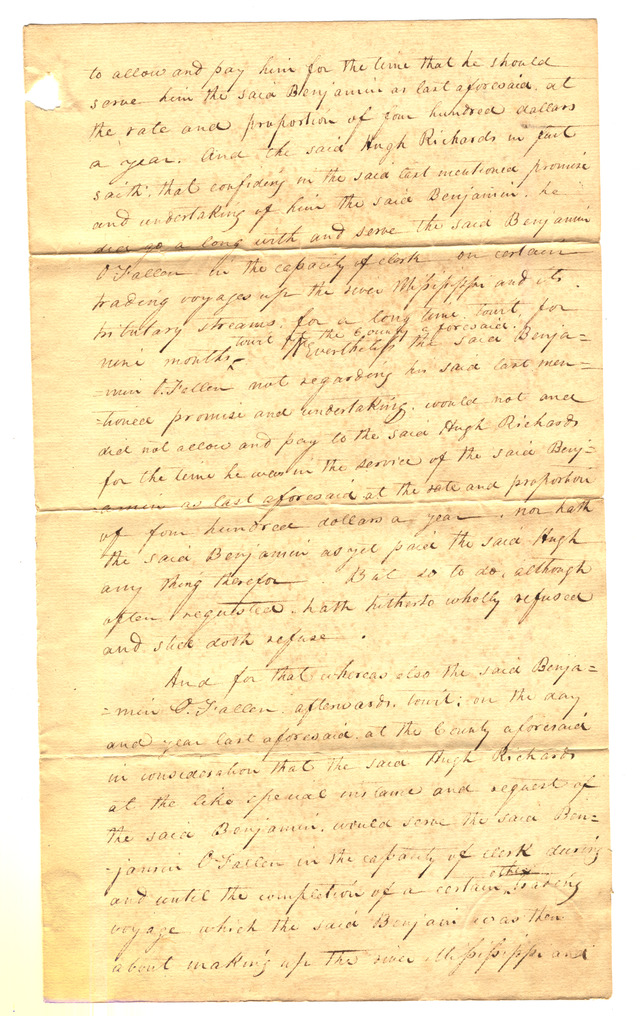 to allow and pay him for the time that he should
serve him the said Benjamin as last aforesaid. at
the rate and proportion of four hundred dollars
a year. And the said Hugh Richards in fact
saith. that confiding in the said last mentioned promise
and undertaking of him the said Benjamin. he
did go a long with and serve the said Benjamin
O'Fallen in the capacity of clerk on certain
trading voyages up the river Missippi and its
tributary streams. for a long time. towit, for
towit at the County aforesaid.
nine months. Nevertheless the said Benja=
=min O.Fallen not regarding his said last men=
=tioned promise and undertaking. would not and
did not allow and pay to the said Hugh Richards
for the time he was in the service of the said Benj-
-amin as last aforesaid at the rate and proportion
of four hundred dollars a year. nor hath
the said Benjamin as yet paid the said Hugh
any thing therefor. But so to do. although
often requested. hath hitherto wholly refused
and still doth refuse.
And for that whereas also the said Benja=
=min O.Fallen. afterwards. towit; on the day
and year last aforesaid. at the County aforesaid
in consideration that the said Hugh Richards
at the like special instance and request of
the said Benjamin. would serve the said Ben-
-jamin O'Fallen in the capacity of clerk during
other
and until the completion of a certain trading
voyage which the said Benjamin was then
about making up the river Missippi and